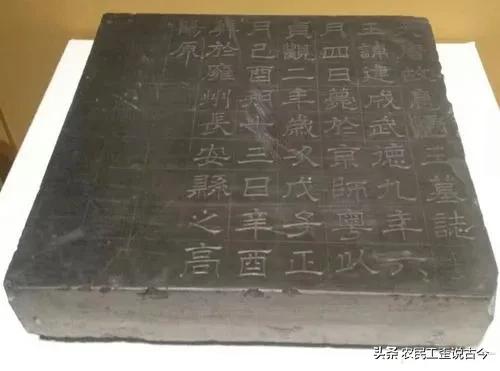 大唐故息隱王墓誌
王諱建成武德九年六
月四日薨於京師粵以
貞觀二年歲次戊子正
月己酉朔十三日辛酉
葬於雍州長安縣之高
陽原
头条 农民工歪说古今